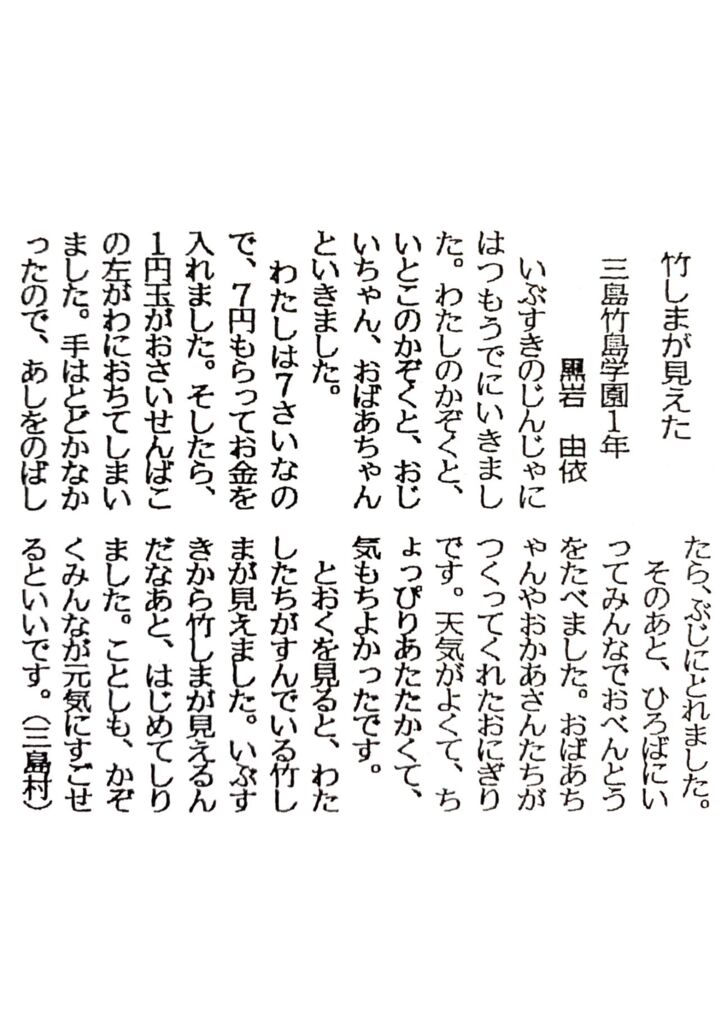 竹しまが見えた
三島竹島学園1年
黒岩　由依
いぶすきのじんじゃに
はつもうでにいきまし
た。わたしのかぞくと、
いとこのかぞくと、おじ
いちゃん、おばあちゃん
といきました。
わたしは7さいなの
で、7円もらってお金を
入れました。そしたら、
1円玉がおさいせんばこ
の左がわにおちてしまい
ました。手はとどかなか
ったので、あしをのばし
たら、ぶじにとれました。
そのあと、ひろばにい
ってみんなでおべんとう
をたべました。おばあち
ゃんやおかあさんたちが
つくってくれたおにぎり
です。天気がよくて、ち
ょっぴりあたたかくて、
気もちよかったです。
とおくを見ると、わた
したちがすんでいる竹し
まが見えました。いぶす
きから竹しまが見えるん
だなあと、はじめてしり
ました。ことしも、かぞ
くみんなが元気にすごせ
るといいです。（三島村）